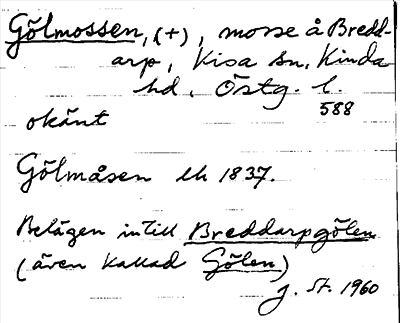 Gölmossen, (+), mosse å Bredd-
arp, Kisa sn, Kinda
hd, Östg. l.
588
okänt
Gölmåsen lk 1837.
Belägen intill Breddarpgölen
(även kallad Gölen)
J. St. 1960